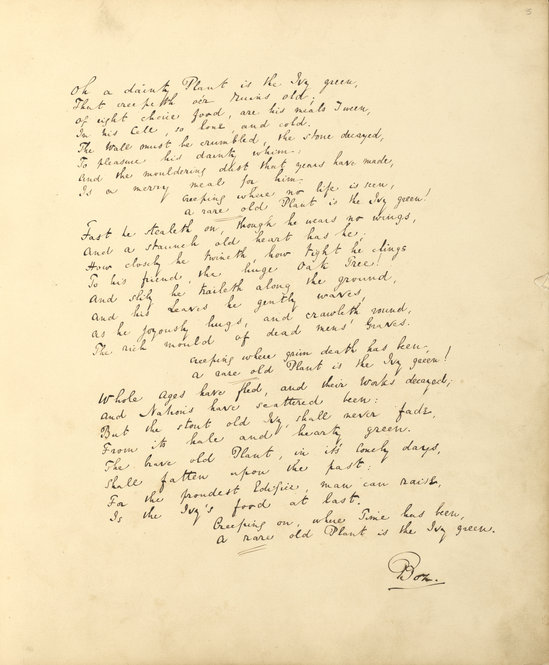 5
Oh a dainty Plant is the Ivy green,
That creepeth oer ruins old,
of right choice food, are his meals I ween,
In his Cell, so lone, and cold.
The Wall must be crumbled, the stone decayed,
To pleasure his dainty whim:
And the mouldering dust that years have made,
Is a merry meal for him.
Creeping where no life is seen,
a rare old Plant is the Ivy green!
Fast he stealeth on, though he wears no wings,
And a staunch old heart has he.
How closely he twineth, how tight he clings
To his friend, the huge Oak Tree!
And slily he traileth along the ground,
And his leaves he gently waves,
as he joyously hugs, and crawleth round,
The rich mould of dead mens' Graves.
Creeping where grim death has been,
a rare old Plant is the Ivy green!
Whole Ages have fled, and their works decayed,
And Nations have scattered been:
But the stout old Ivy, shall never fade,
From its hale and hearty green.
The brave old Plant, in its lonely days,
shall fatten upon the past:
For the proudest Edifice, man can raise,
Is the Ivy's food at last.
Creeping on, where Time has been,
a rare old Plant is the Ivy green.
Boz.